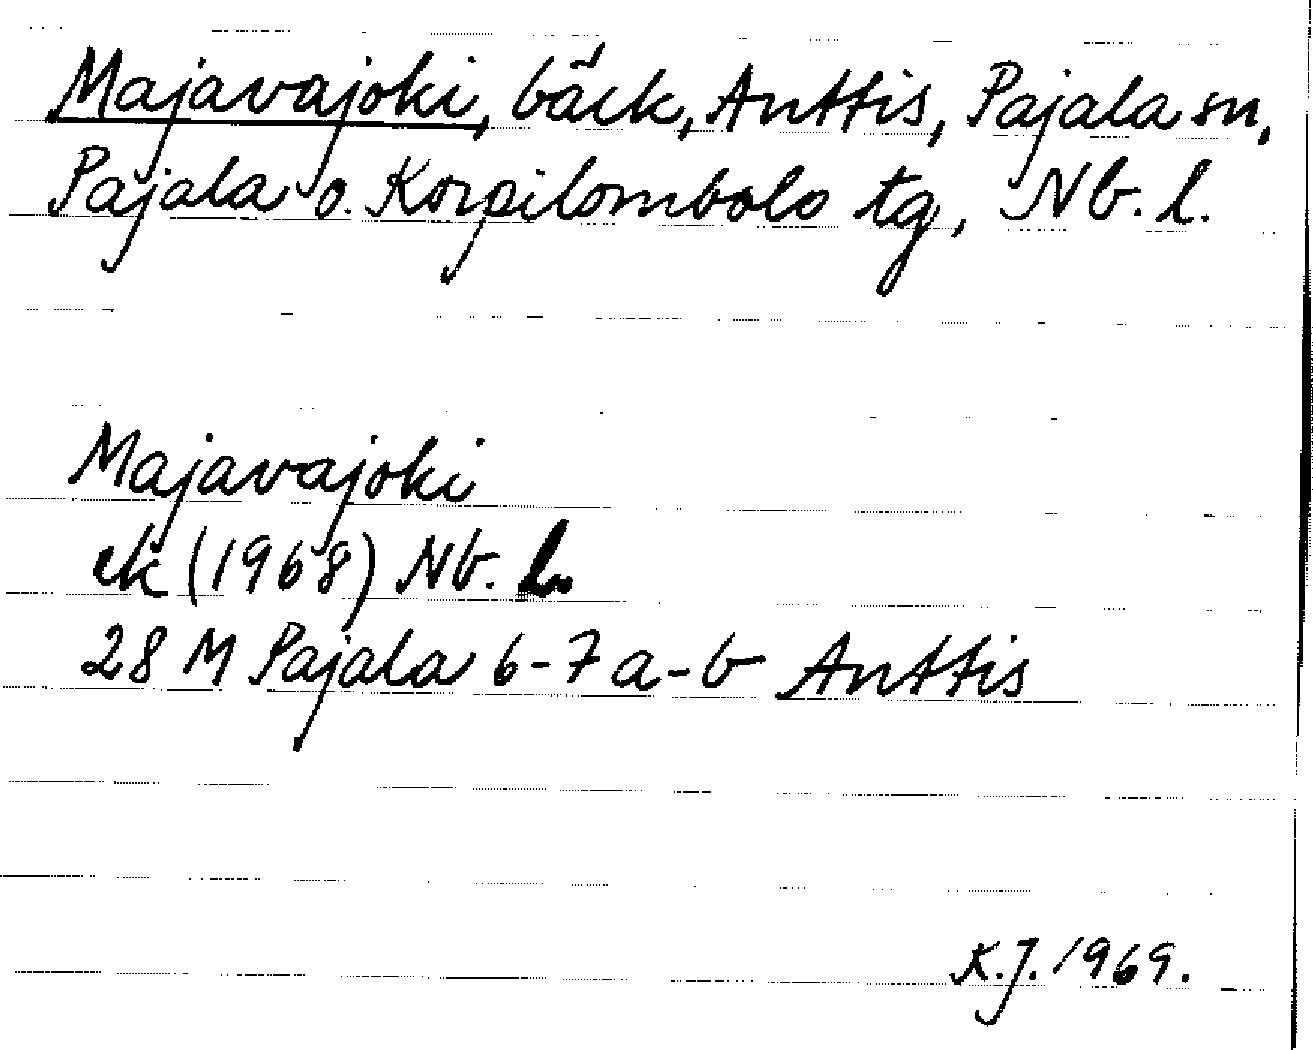 Majavajoki, bäck, Anttis, Pajala sn,
Pajala o. Korpilombolo tg, Nb. l.
Majavajoki
ek (1968) Nb. l.
28 M Pajala 6-7 a-b Anttis
K.J. 1969.